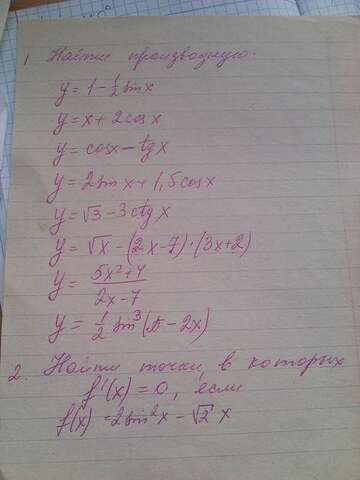 1 Найти производную:
y = 1 - 1/2 sin x
y = x + 2 cos x
y = cos x - tg x
y = 2 sin x + 1,5 cos x
y = √3 - 3 ctg x
y = √x - (2x - 7) · (3x + 2)
y = (5x² + 4)/(2x - 7)
y = 1/2 sin³(π - 2x)
2. Найти точки, в которых
f'(x) = 0, если
f(x) = 2 sin² x - √2 x